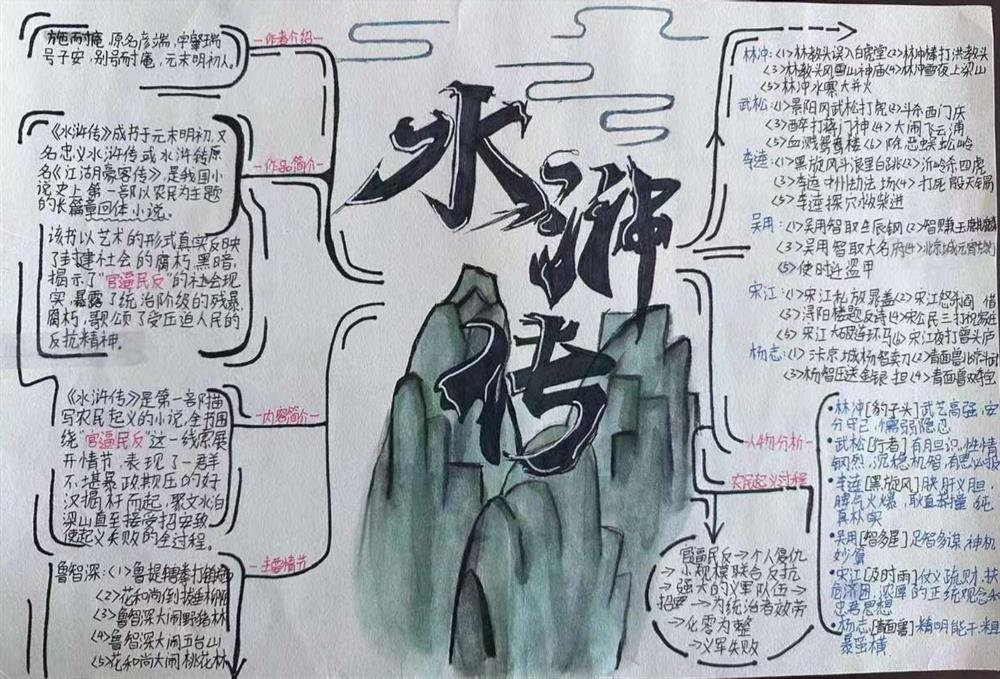 水浒传
作者介绍
施耐庵,原名彦端,字肇瑞
号子安,别号耐庵,元末明初人。
作品简介
《水浒传》成书于元末明初,又
名忠义水浒传或水浒传原
名《江湖豪客传》,是我国小
说史上第一部以农民为主题
的长篇章回体小说。
该书以艺术的形式真实反映
了封建社会的腐朽、黑暗,
揭示了"官逼民反"的社会现
实,暴露了统治阶级的残暴、
腐朽,歌颂了受压迫人民的
反抗精神。
内容简介
《水浒传》是第一部描
写农民起义的小说,全书围
绕"官逼民反"这一线索展
开情节,表现了一群
不堪暴政欺压的好
汉揭杆而起,聚义水泊
梁山直至接受招安致
使起义失败的全过程。
主要情节
鲁智深:(1)鲁提辖拳打镇关西
(2)花和尚倒拔垂杨柳
(3)鲁智深大闹野猪林
(4)鲁智深大闹五台山
(5)花和尚大闹桃花林
林冲:(1)林教头误入白虎堂(2)林冲棒打洪教头
(3)林教头风雪山神庙(4)林冲雪夜上梁山
(5)林冲水寨大并火
武松:(1)景阳冈武松打虎(2)斗杀西门庆
(3)醉打蒋门神(4)大闹飞云浦
(5)血溅鸳鸯楼(6)除恶蜈蚣岭
李逵:(1)黑旋风斗浪里白跳(2)沂岭杀四虎
(3)李逵中州劫法场(4)打死殷天锡
(5)李逵探穴救柴进
吴用:(1)吴用智取生辰钢(2)智赚玉麒麟
(3)吴用智取大名府(4)北京城元宵
(5)使时迁盗甲
宋江:(1)宋江私放晁盖(2)宋江怒杀阎
(3)浔阳楼题反诗(4)宋公明三打祝家庄
(5)宋江大破连环马(6)宋江夜打曾头
杨志:(1)汴京城杨智卖刀(2)青面兽北京斗
(3)杨智压送金银担(4)青面兽双夺宝
人物分析
林冲[豹子头]武艺高强,安
分守己,懦弱隐忍
武松[行者]有胆识,性情
刚烈,沉稳机智,有恩必报
李逵[黑旋风]侠肝义胆,
脾气火爆,耿直莽撞,纯
真朴实
吴用[智多星]足智多谋,神机
妙算
宋江[及时雨]仗义疏财,扶
危济困,深厚的正统观念和
忠君思想
杨志[青面兽]精明能干,粗
暴蛮横
农民起义过程
官逼民反→个人复仇
→小规模联合反抗
→强大的义军队伍→
招安→为统治者效劳
→化零为整
→义军失败